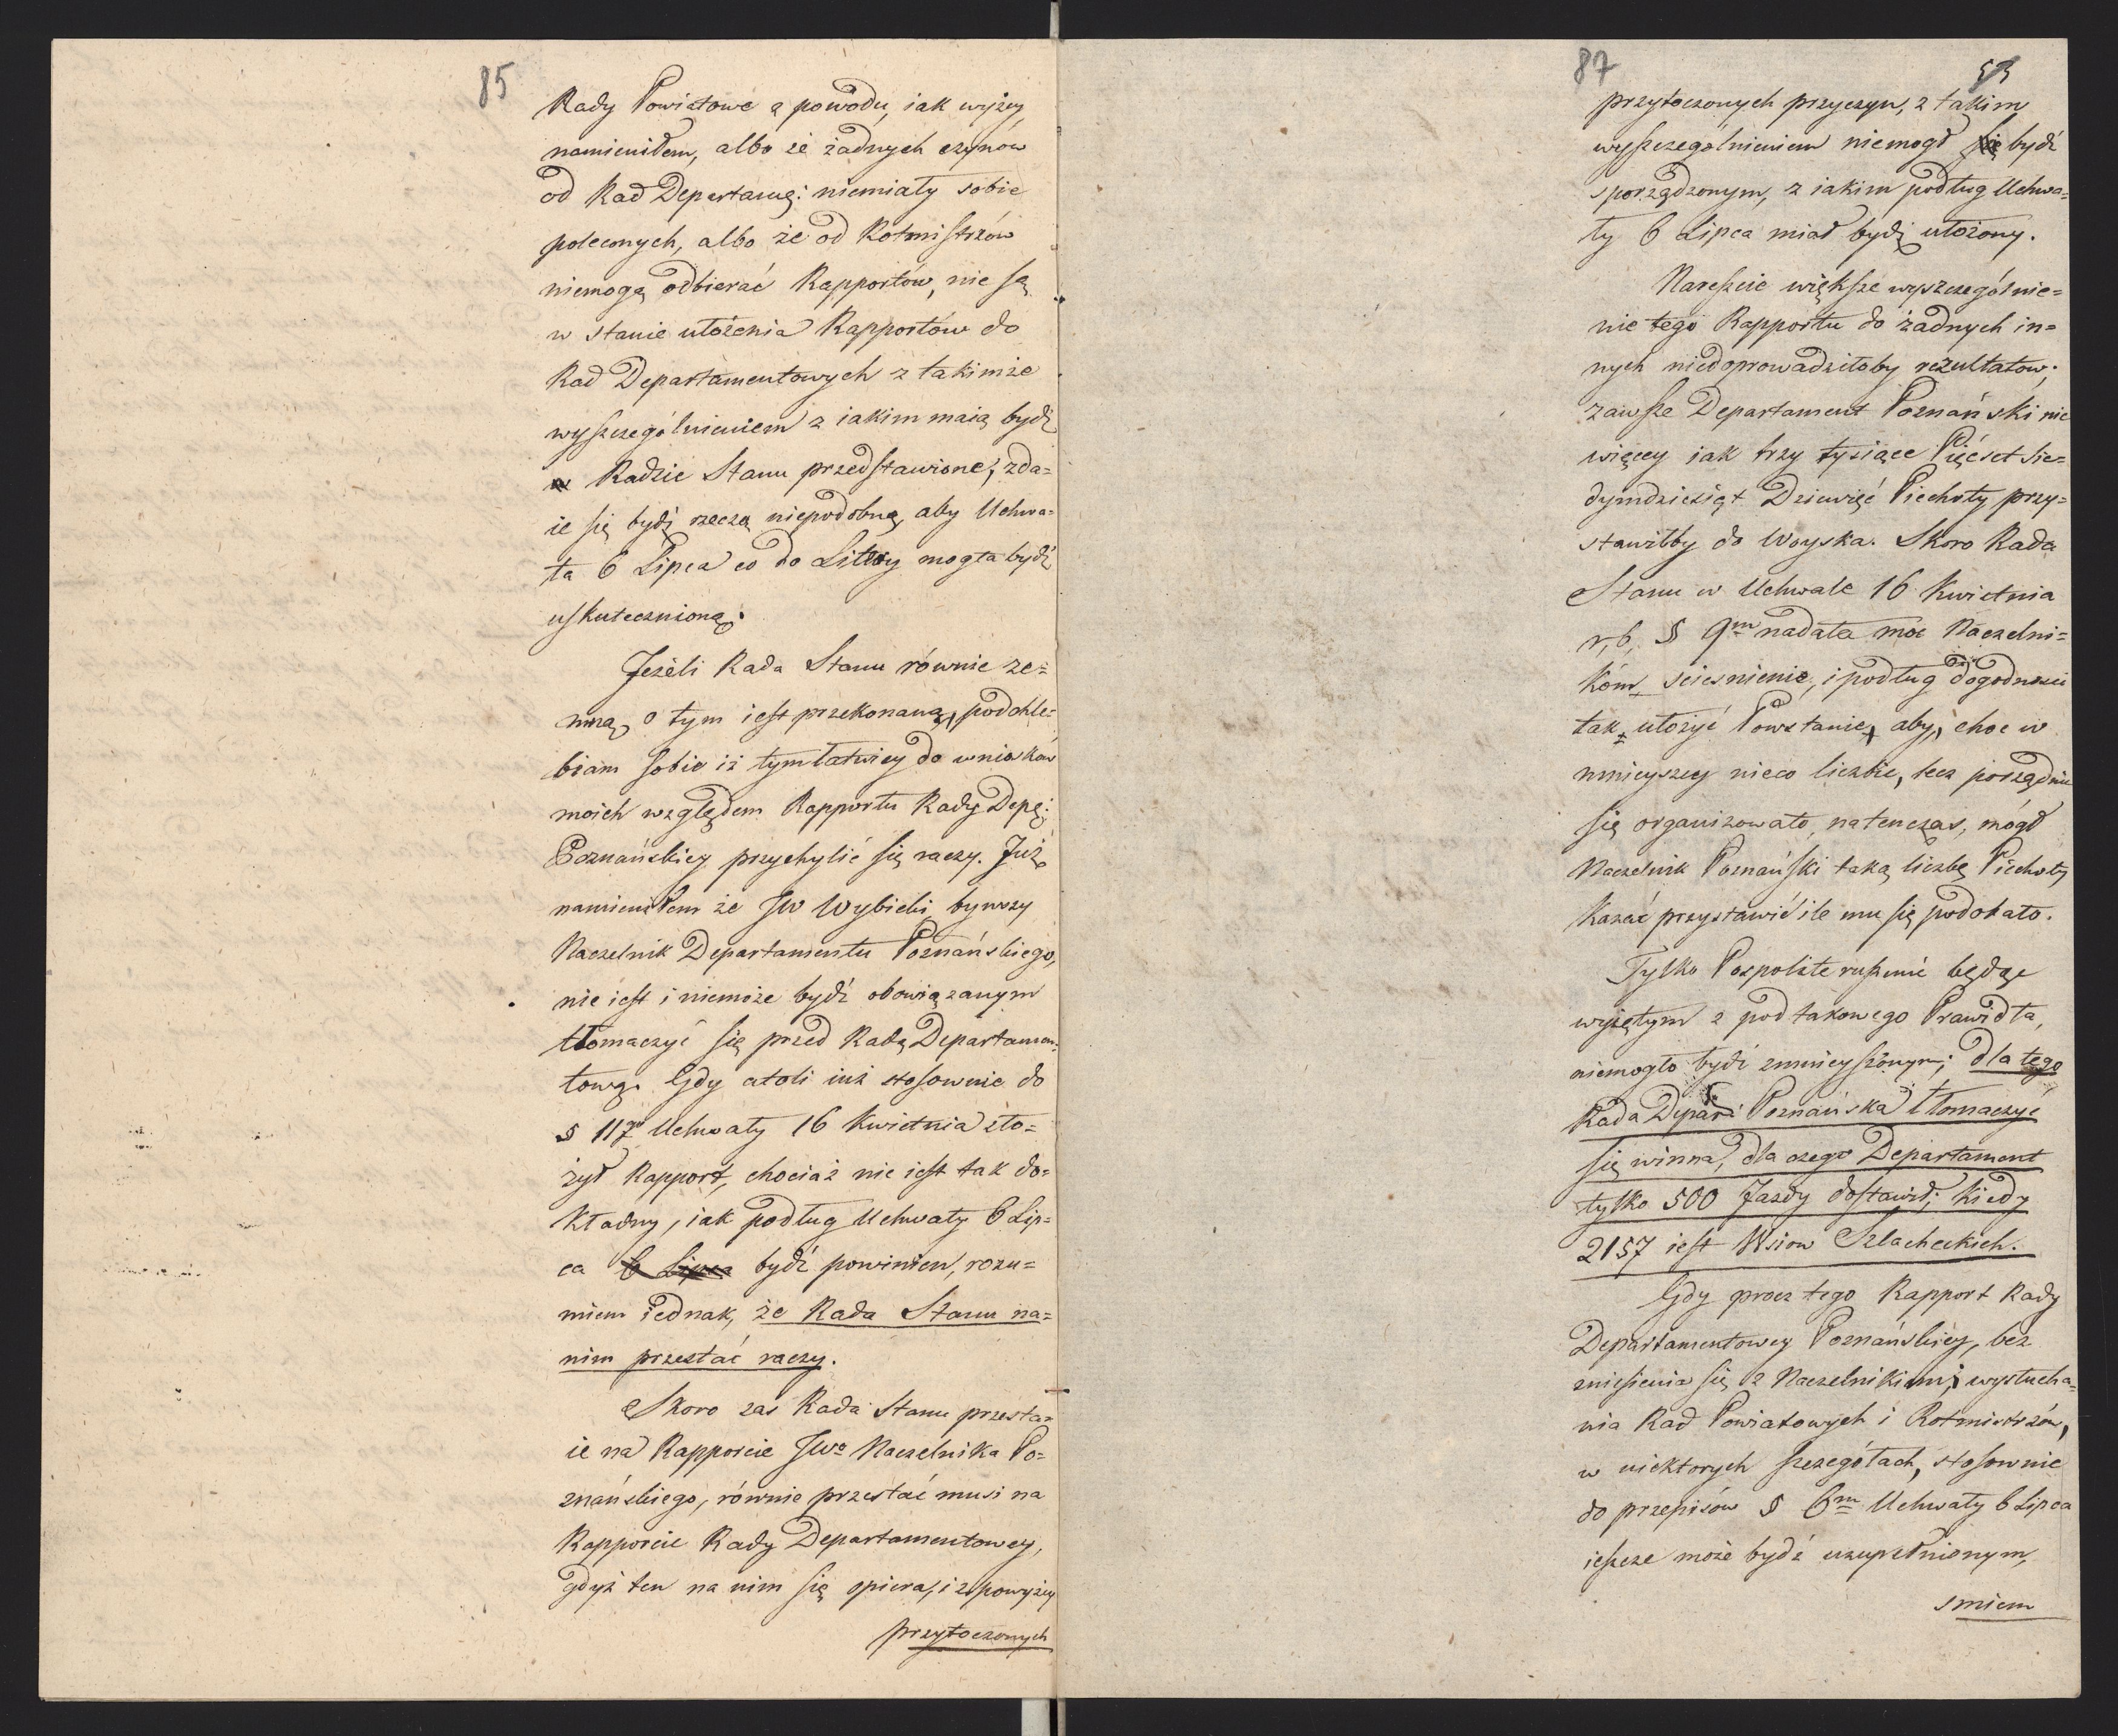 85
Rady Powiatowe z powodu, iak wyżey
namieniłem, albo że żadnych czynów
od Rad Departamę: niemiały sobie
poleconych, albo że od Rotmistrzów
niemogą odbierać Rapportów, nie są
w stanie ułożenia Rapportów do
Rad Departamentowych z takimże
wyszczególnieniem z iakim maią bydź
w Radzie Stanu przedstawione, zda=
ie się bydź rzeczą niepodobną, aby Uchwa=
ła 6 Lipca co do Litery mogła bydź
uskuteczniona.
Jeżeli Rada Stanu równie ze=
mną o tym iest przekonaną, podchle=
biam sobie iż tym łatwiey do wniosków
moich względem Rapportu Rady Depę:
Poznańskiey przychylić się raczy. Już
namieniłem że JW Wybicki bywszy
Naczelnik Departamentu Poznańskiego,
nie iest i niemoże bydź obowiązanym
tłomaczyć się przed Radą Departamen=
tową. Gdy atoli iuż stosownie do
§ 11go Uchwały 16 Kwietnia zło=
żył Rapport, chociaż nie iest tak do=
kładny, iak podług Uchwały 6 Lip=
ca 6 Lipca bydź powinien, rozu=
miem iednak, że Rada Stanu na=
nim przestać raczy.
Skoro zas Rada Stanu przesta=
ie na Rapporcie JWo Naczelnika Po=
znańskiego, równie przestać musi na
Rapporcie Rady Departamentowey,
gdyż ten na nim się opiera, i z powyżey
przytoczonych
87
przytoczonych przyczyn, z takim
wyszczególnieniem niemogł się bydź
sporządzonym, z iakim podług Uchwa=
ły 6 Lipca miał bydź ułożony.
Nareszcie większe wyszczególnie=
nie tego Rapportu do żadnych in=
nych niedoprowadziłoby rezultatow;
zawsze Departament Poznański nie
więcey iak trzy tysiące Pięćset Sie=
dymdziesiąt Dziewięć Piechoty przy=
stawiłby do Woyska. Skoro Rada
Stanu w Uchwale 16 Kwietnia
r, b, § 9m nadała moc Naczelni=
kóm scieśnienie, i podług dogodności
tak ułożyć Powstanie, aby, choc w
mnieyszey nieco liczbie, lecz porządnie
się organizowało, natenczas, mógł
Naczelnik Poznański taką liczbę Piechoty
kazać przystawić ile mu się podobało.
Tylko Pospolite ruszenie będąc
wyiętym z pod takowego Prawidła,
niemogło bydź zmnieyszonym; dla tego
Rada Depart: Poznańska tłomaczyć
się winna, dla czego Departament
tylko 500 Jazdy dostawił; kiedy
2157 iest Wsiow Szlacheckich.
Gdy procz tego Rapport Rady
Departamentowey Poznańskiey, bez
zniesienia się z Naczelnikiem, i wysłucha=
nia Rad Powiatowych i Rotmistrzów,
w niektorych szczegółach, stosownie
do przepisów § 6m Uchwały 6 Lipca
ieszcze może bydź uzupełnionym,
smiem